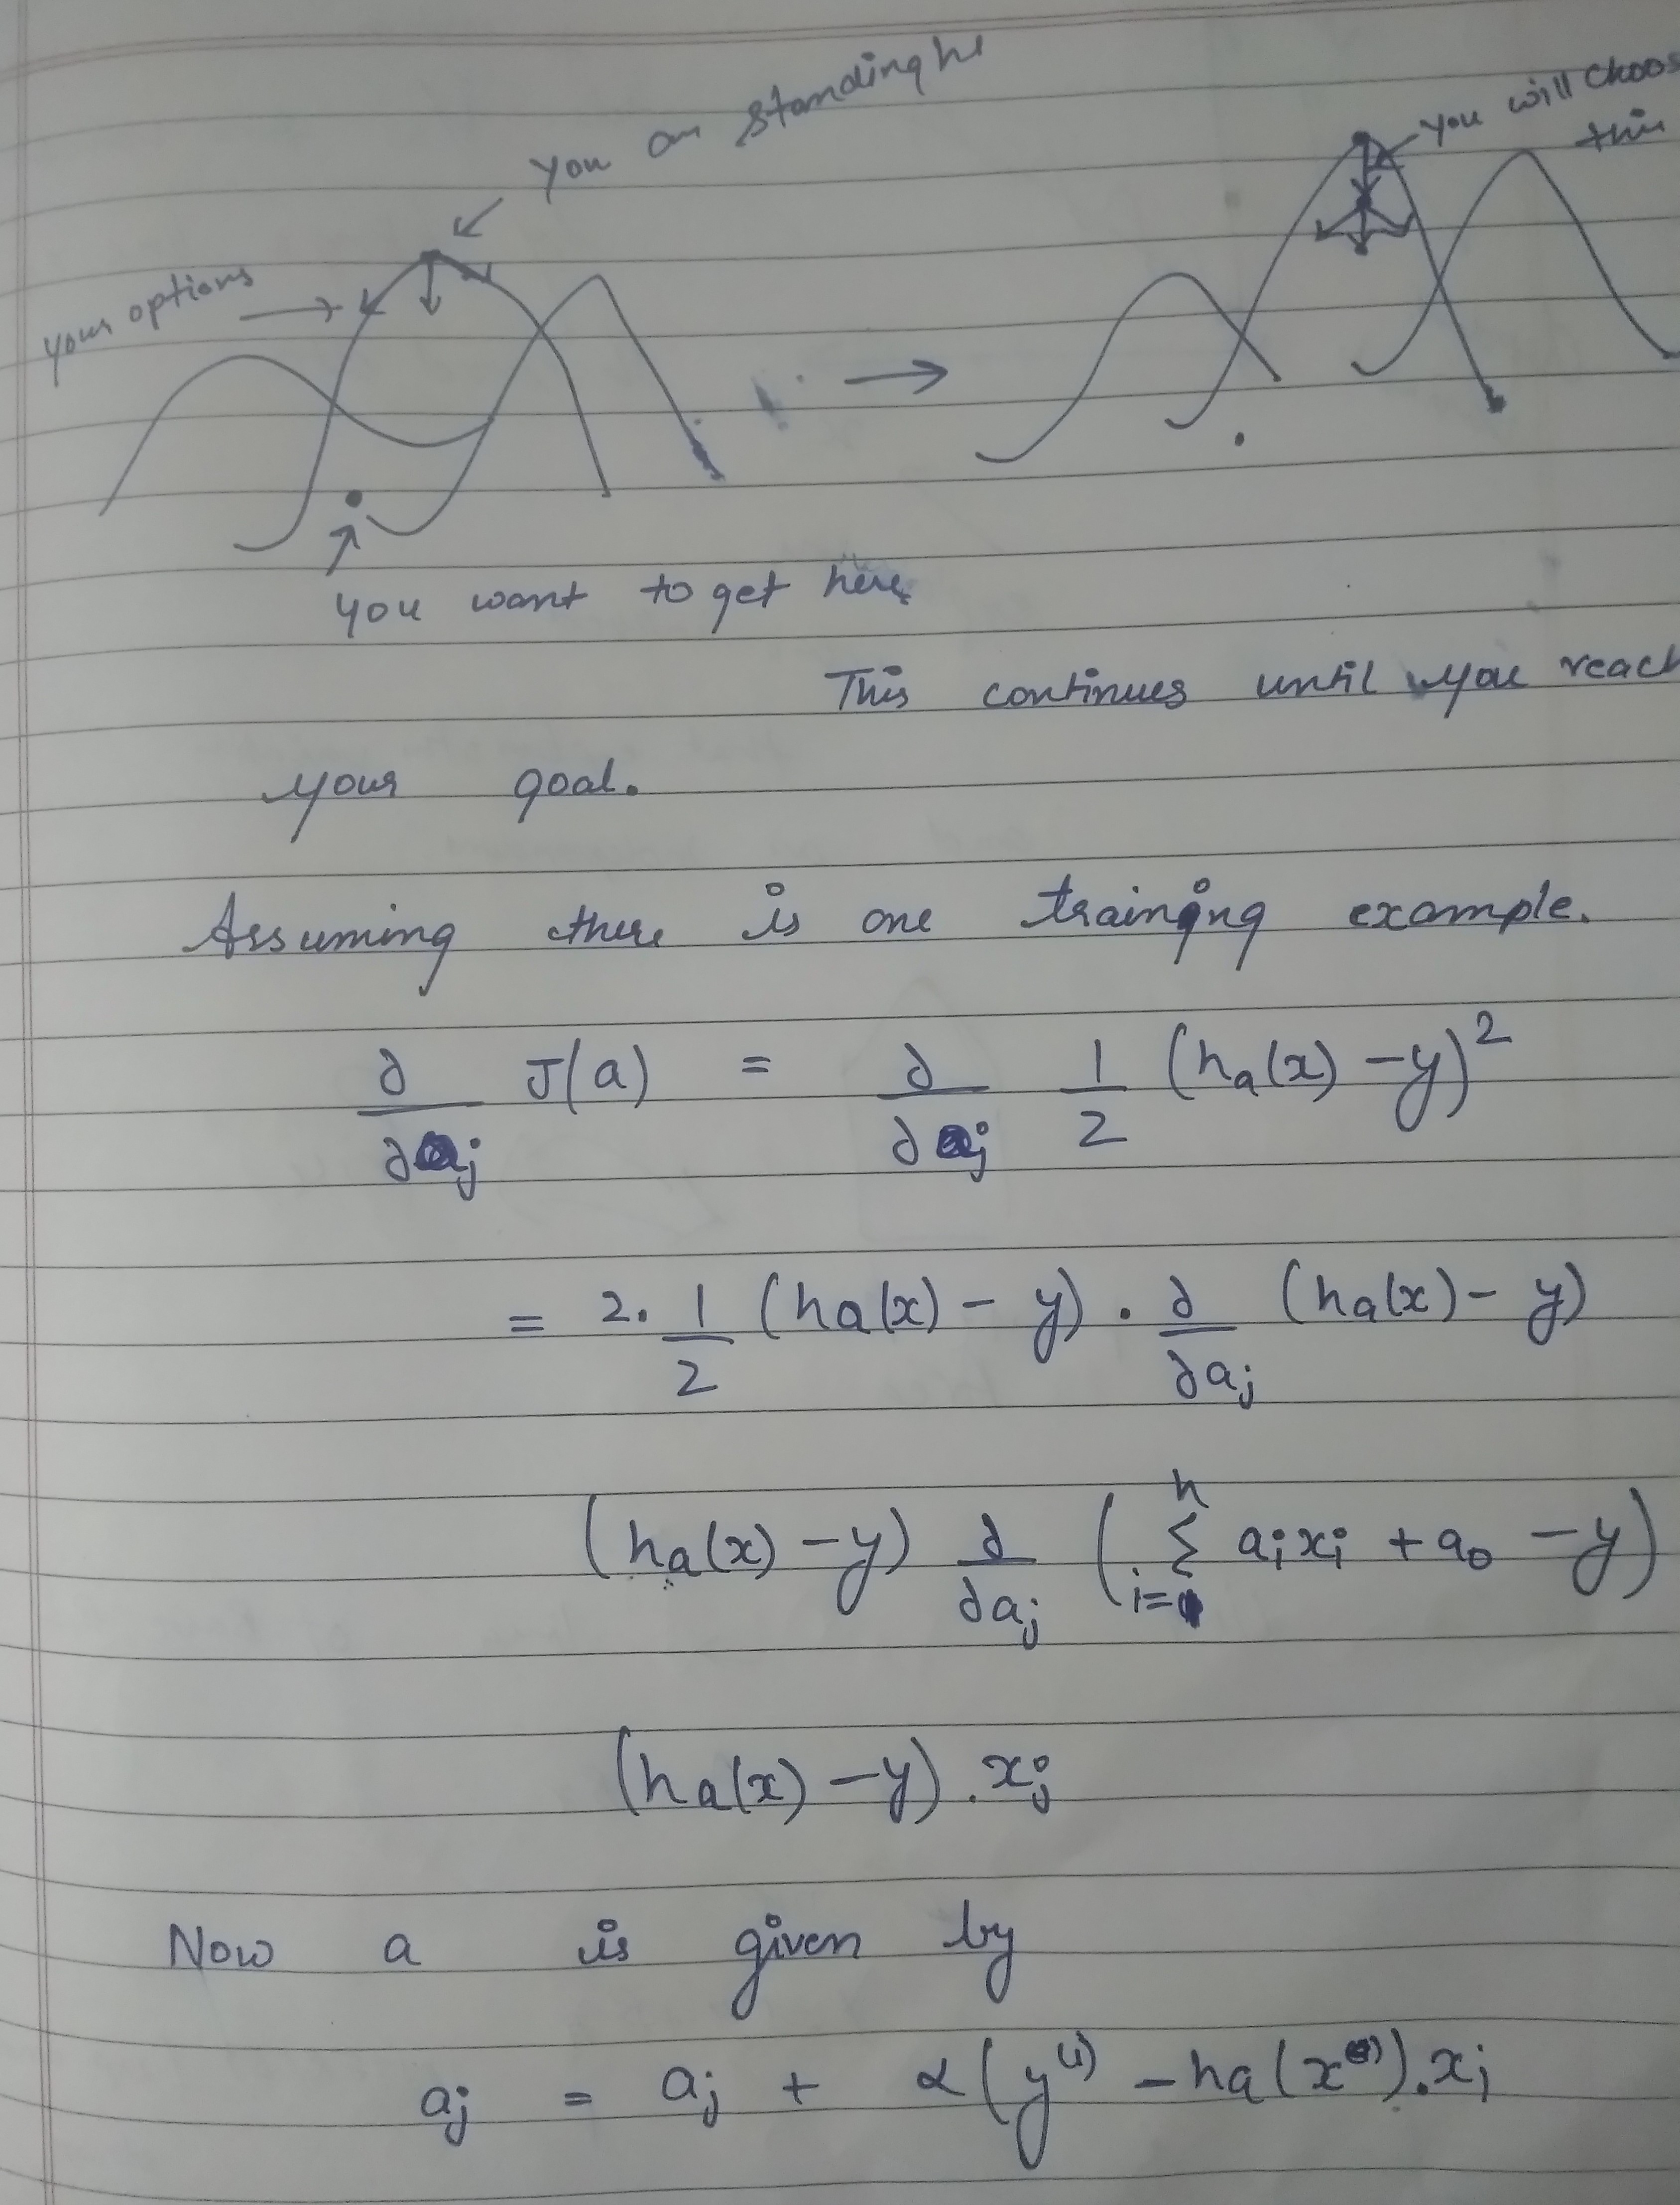 you are standing he
you will choos
this
your options
you want to get here
This continues until you reach
your goal.
Assuming there is one training example.
∂/∂aj J(a) = ∂/∂aj 1/2 (ha(x) - y)²
= 2. 1/2 (ha(x) - y) . ∂/∂aj (ha(x) - y)
(ha(x) - y) ∂/∂aj (Σ i=1 n aixi + a0 - y)
(ha(x) - y) . xj
Now a is given by
aj = aj + α(y(i) - ha(x(i)).xj